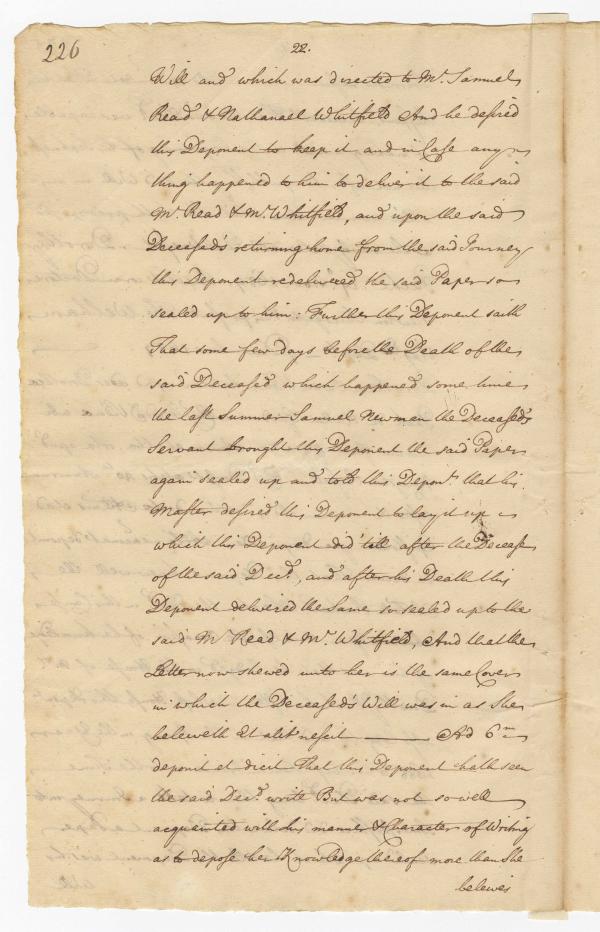 226
22.
Will and which was directed to Mr. Samuel
Read & Nathanael Whitfield And he desired
this Deponent to keep it and in Case any
thing happened to him to deliver it to the said
Mr. Read & Mr. Whitfield, and upon the said
Deceased's returning home from the said Journey
this Deponent redelivered the said Paper so
sealed up to him: Further this Deponent saith
That some few days before the Death of the
said Deceased which happened some time
the last Summer Samuel Newman the Deceased's
Servant brought this Deponent the said Paper
again sealed up and told this Depont. that his
Master desired this Deponent to lay it up
which this Deponent did 'till after the Decease
of the said Decd., and after his Death this
Deponent delivered the Same so sealed up to the
said Mr. Read & Mr. Whitfield, And that the
Letter now shewed unto her is the same Cover
in which the Deceased's Will was in as She
beleiveth Et alit nescit ——— Ad 6m
deponit et dicit That this Deponent hath seen
the said Decd. write But was not so well
acquainted with his manner & Character of Writing
as to depose her Knowledge thereof more than She
beleives